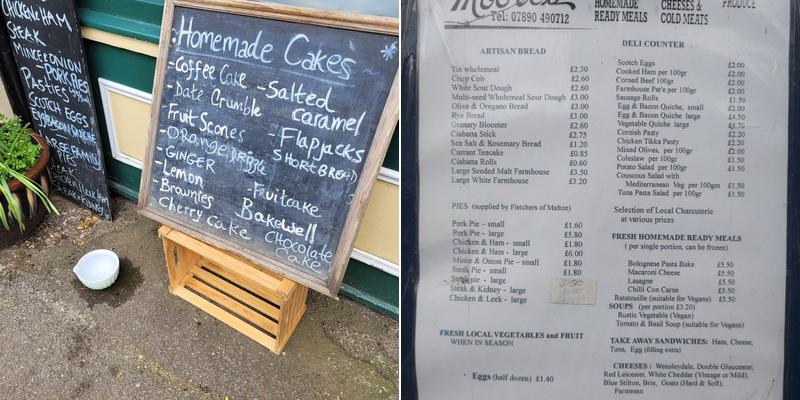 CHICKEN & HAM
STEAK
MINCE & ONION
PORK PIES
PASTIES
SCOTCH EGGS
Homemade Cakes
- Coffee Cake
- Date Crumble
- Salted
caramel
Fruit Scones
- Flapjacks
- Orange Drizzle
SHORTBREAD
- GINGER
- Lemon
- Fruitcake
- Brownies
Bakewell
- Cherry Cake
Chocolate
Cake
Tel: 07890 490712
HOMEMADE
READY MEALS
CHEESES &
COLD MEATS
PRODUCE
ARTISAN BREAD
Tin wholemeal £2.30
Crisp Cob £2.60
White Sour Dough £2.60
Multi-seed Wholemeal Sour Dough £3.00
Olive & Oregano Bread £3.00
Rye Bread £3.00
Granary Bloomer £2.60
Ciabatta Stick £2.75
Sea Salt & Rosemary Bread £1.20
Currant Teacake £0.85
Ciabatta Rolls £0.60
Large Seeded Malt Farmhouse £3.50
Large White Farmhouse £3.20
PIES (supplied by Fletchers of Malton)
Pork Pie – small £1.60
Pork Pie - large £5.80
Chicken & Ham - small £1.80
Chicken & Ham - large £6.00
Mince & Onion Pie – small £1.80
Steak Pie - small £1.80
Steak pie - large
Steak & Kidney - large
Chicken & Leek - large
FRESH LOCAL VEGETABLES and FRUIT
WHEN IN SEASON
Eggs (half dozen) £1.40
DELI COUNTER
Scotch Eggs £2.00
Cooked Ham per 100gr £2.00
Corned Beef 100gr £2.00
Farmhouse Pat'e per 100gr £2.00
Sausage Rolls £1.50
Egg & Bacon Quiche, small £2.00
Egg & Bacon Quiche large £4.50
Vegetable Quiche large £4.70
Cornish Pasty £2.20
Chicken Tikka Pasty £2.20
Mixed Olives, per 100gr £2.00
Coleslaw per 100gr £1.50
Potato Salad per 100gr £1.50
Couscous Salad with
Mediterranean Veg per 100gm £1.50
Tuna Pasta Salad per 100gr £1.50
Selection of Local Charcuterie
at various prices
FRESH HOMEMADE READY MEALS
( per single portion, can be frozen)
Bolognese Pasta Bake £5.50
Macaroni Cheese £5.50
Lasagne £5.50
Chilli Con Carne £5.50
Ratatouille (suitable for Vegans) £5.50
SOUPS (per portion £3.20)
Rustic Vegetable (Vegan)
Tomato & Basil Soup (suitable for Vegans)
TAKE AWAY SANDWICHES: Ham, Cheese,
Tuna, Egg (filling extra)
CHEESES : Wensleydale, Double Gloucester,
Red Leicester, White Cheddar (Vintage or Mild),
Blue Stilton, Brie, Goats (Hard & Soft),
Parmesan